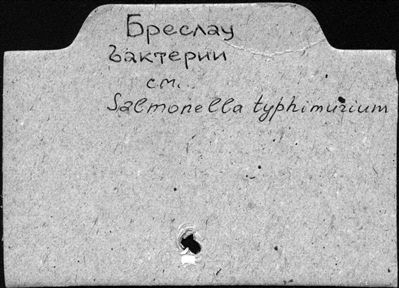 Бреслау
бактерии
см.
Salmonella typhimurium